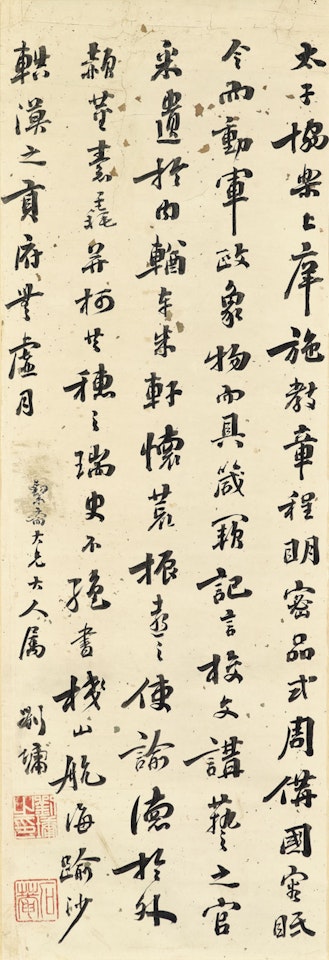 太子協樂上庠施教章程明密品式周備國容眡
令而動軍政象物而具箴闕記言校文講藝之官
采遺於內輶車朱軒懷荒振遠之使論德於外
赬莖素毳并柯共穗之瑞史不絕書棧山航海踰沙
軼漠之貢府無虛月
齋大兄大人屬
劉墉
劉墉之印
石菴